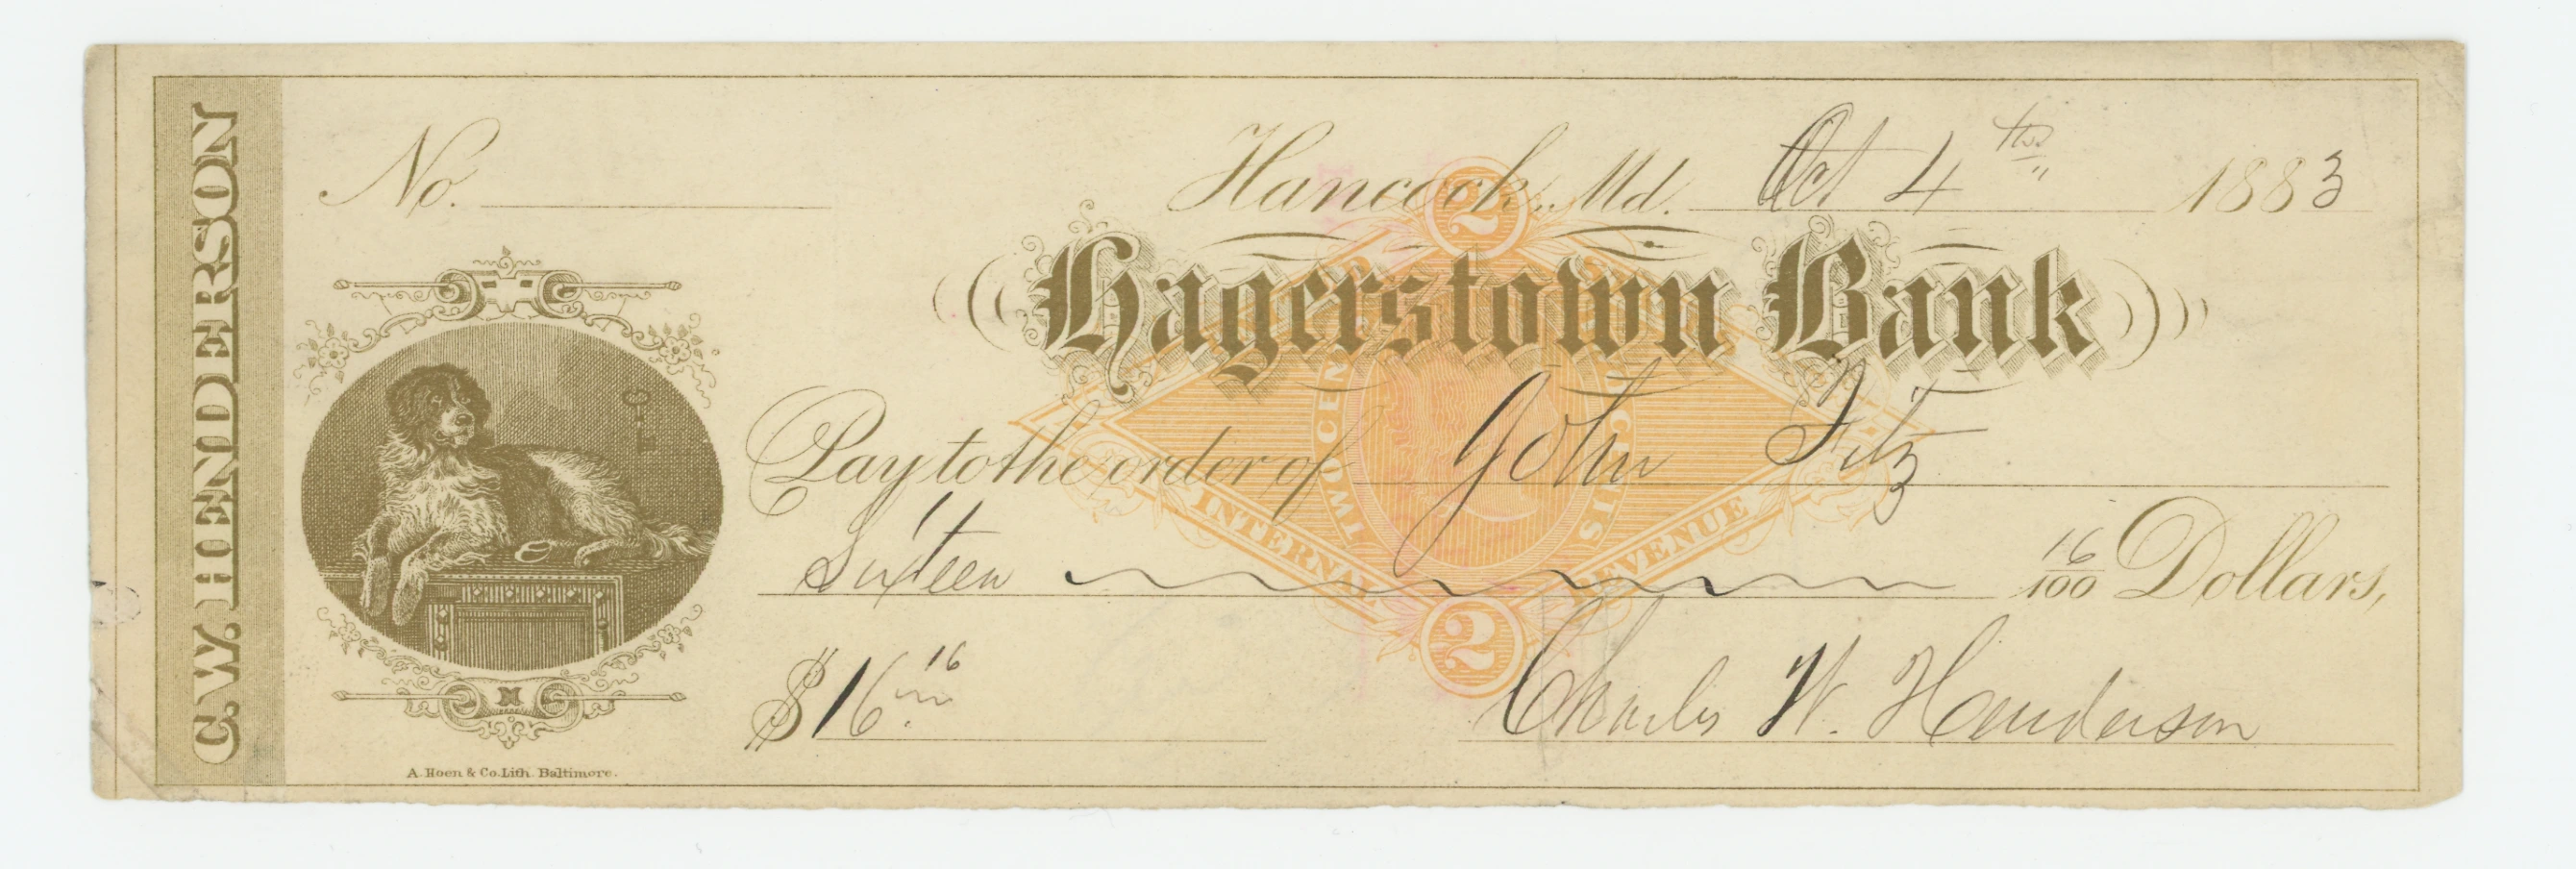 C. W. HENDERSON
No.
Hancock, Md. Oct 4th 1883
Hagerstown Bank
Pay to the order of John Fitz
Sixteen 16/100 Dollars,
$16 16/100
Charles W. Henderson
2
TWO CENTS
INTERNAL REVENUE
2
A. Hoen & Co. Lith. Baltimore.